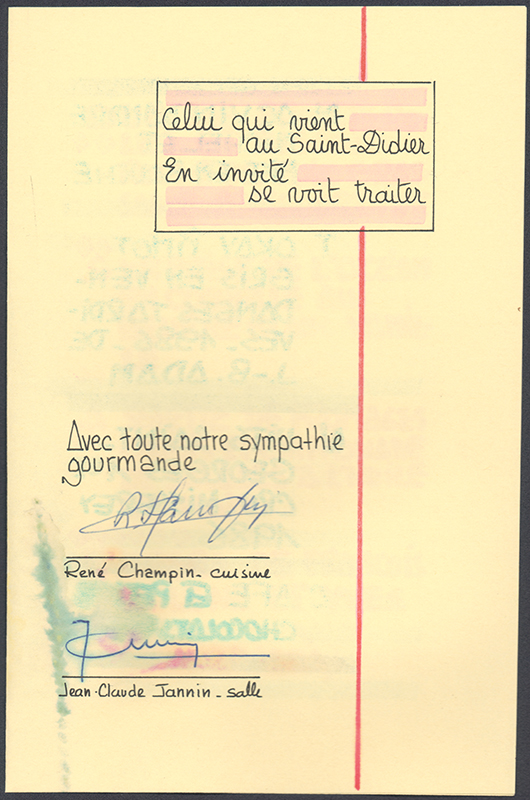 Celui qui vient
au Saint-Didier
En invité
se voit traiter
Avec toute notre sympathie
gourmande
René Champin - cuisine
Jean-Claude Jannin - salle